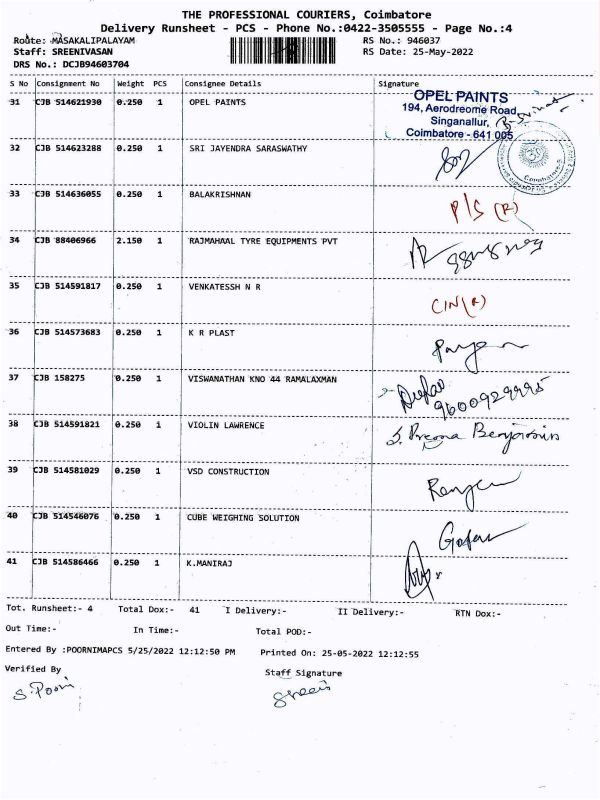 THE PROFESSIONAL COURIERS, Coimbatore
Delivery Runsheet - PCS - Phone No.:0422-3505555 - Page No.:4
Route: MASAKALIPALAYAM RS No.: 946037
Staff: SREENIVASAN RS Date: 25-May-2022
DRS No.: DCJB94603704
S No Consignment No Weight PCS Consignee Details Signature
31 CJB 514621930 0.250 1 OPEL PAINTS
OPEL PAINTS
194, Aerodreome Road,
Singanallur,
Coimbatore - 641 005
32 CJB 514623288 0.250 1 SRI JAYENDRA SARASWATHY
33 CJB 514636055 0.250 1 BALAKRISHNAN P/S (R)
34 CJB 88406966 2.150 1 RAJMAHAAL TYRE EQUIPMENTS PVT
35 CJB 514591817 0.250 1 VENKATESSH N R CIN(R)
36 CJB 514573683 0.250 1 K R PLAST
37 CJB 158275 0.250 1 VISWANATHAN KNO 44 RAMALAXMAN
9600929995
38 CJB 514591821 0.250 1 VIOLIN LAWRENCE
39 CJB 514581029 0.250 1 VSD CONSTRUCTION
40 CJB 514546076 0.250 1 CUBE WEIGHING SOLUTION
41 CJB 514586466 0.250 1 K.MANIRAJ
Tot. Runsheet:- 4 Total Dox:- 41 I Delivery:- II Delivery:- RTN Dox:-
Out Time:- In Time:- Total POD:-
Entered By :POORNIMAPCS 5/25/2022 12:12:50 PM Printed On: 25-05-2022 12:12:55
Verified By Staff Signature
S. Poorni